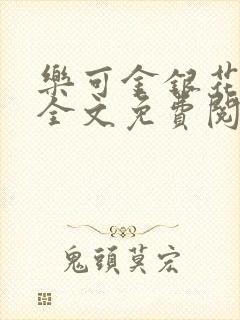 樂可金銀花
全文免費閱
鬼頭莫宏